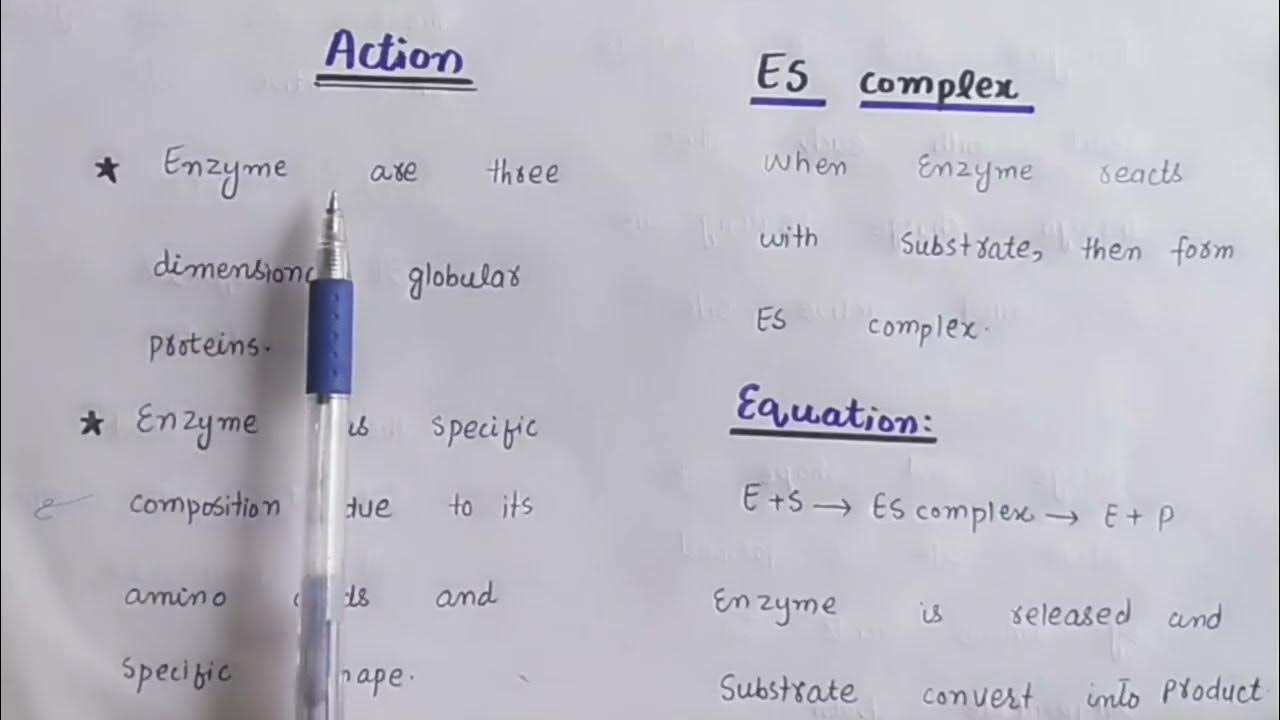 Action
★ Enzyme are three
dimension globular
proteins.
★ Enzyme is specific
composition due to its
amino and
specific
ES complex
when Enzyme reacts
with substrate, then form
ES complex.
Equation:
E + S → ES complex → E + P
Enzyme is released and
Substrate convert into Product